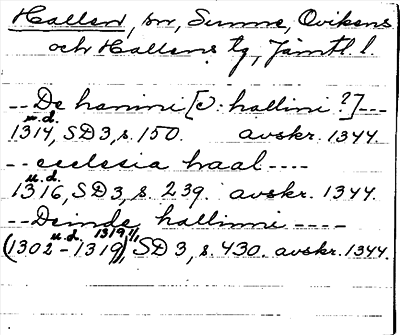 Hallen, sn, Sunne, Ovikens
och Hallens tg, Jämtl. l.
-- De hanini [ɔ: hallini ?] ---
u.d.
1314, SD 3, s. 150. avskr. 1344.
-- ecclesia haal ----
u.d.
1316, SD 3, s. 239. avskr. 1344.
-- Deinde hallinni ----
u.d. 1319 1/1
(1302 - 1319), SD 3, s. 430. avskr. 1344.